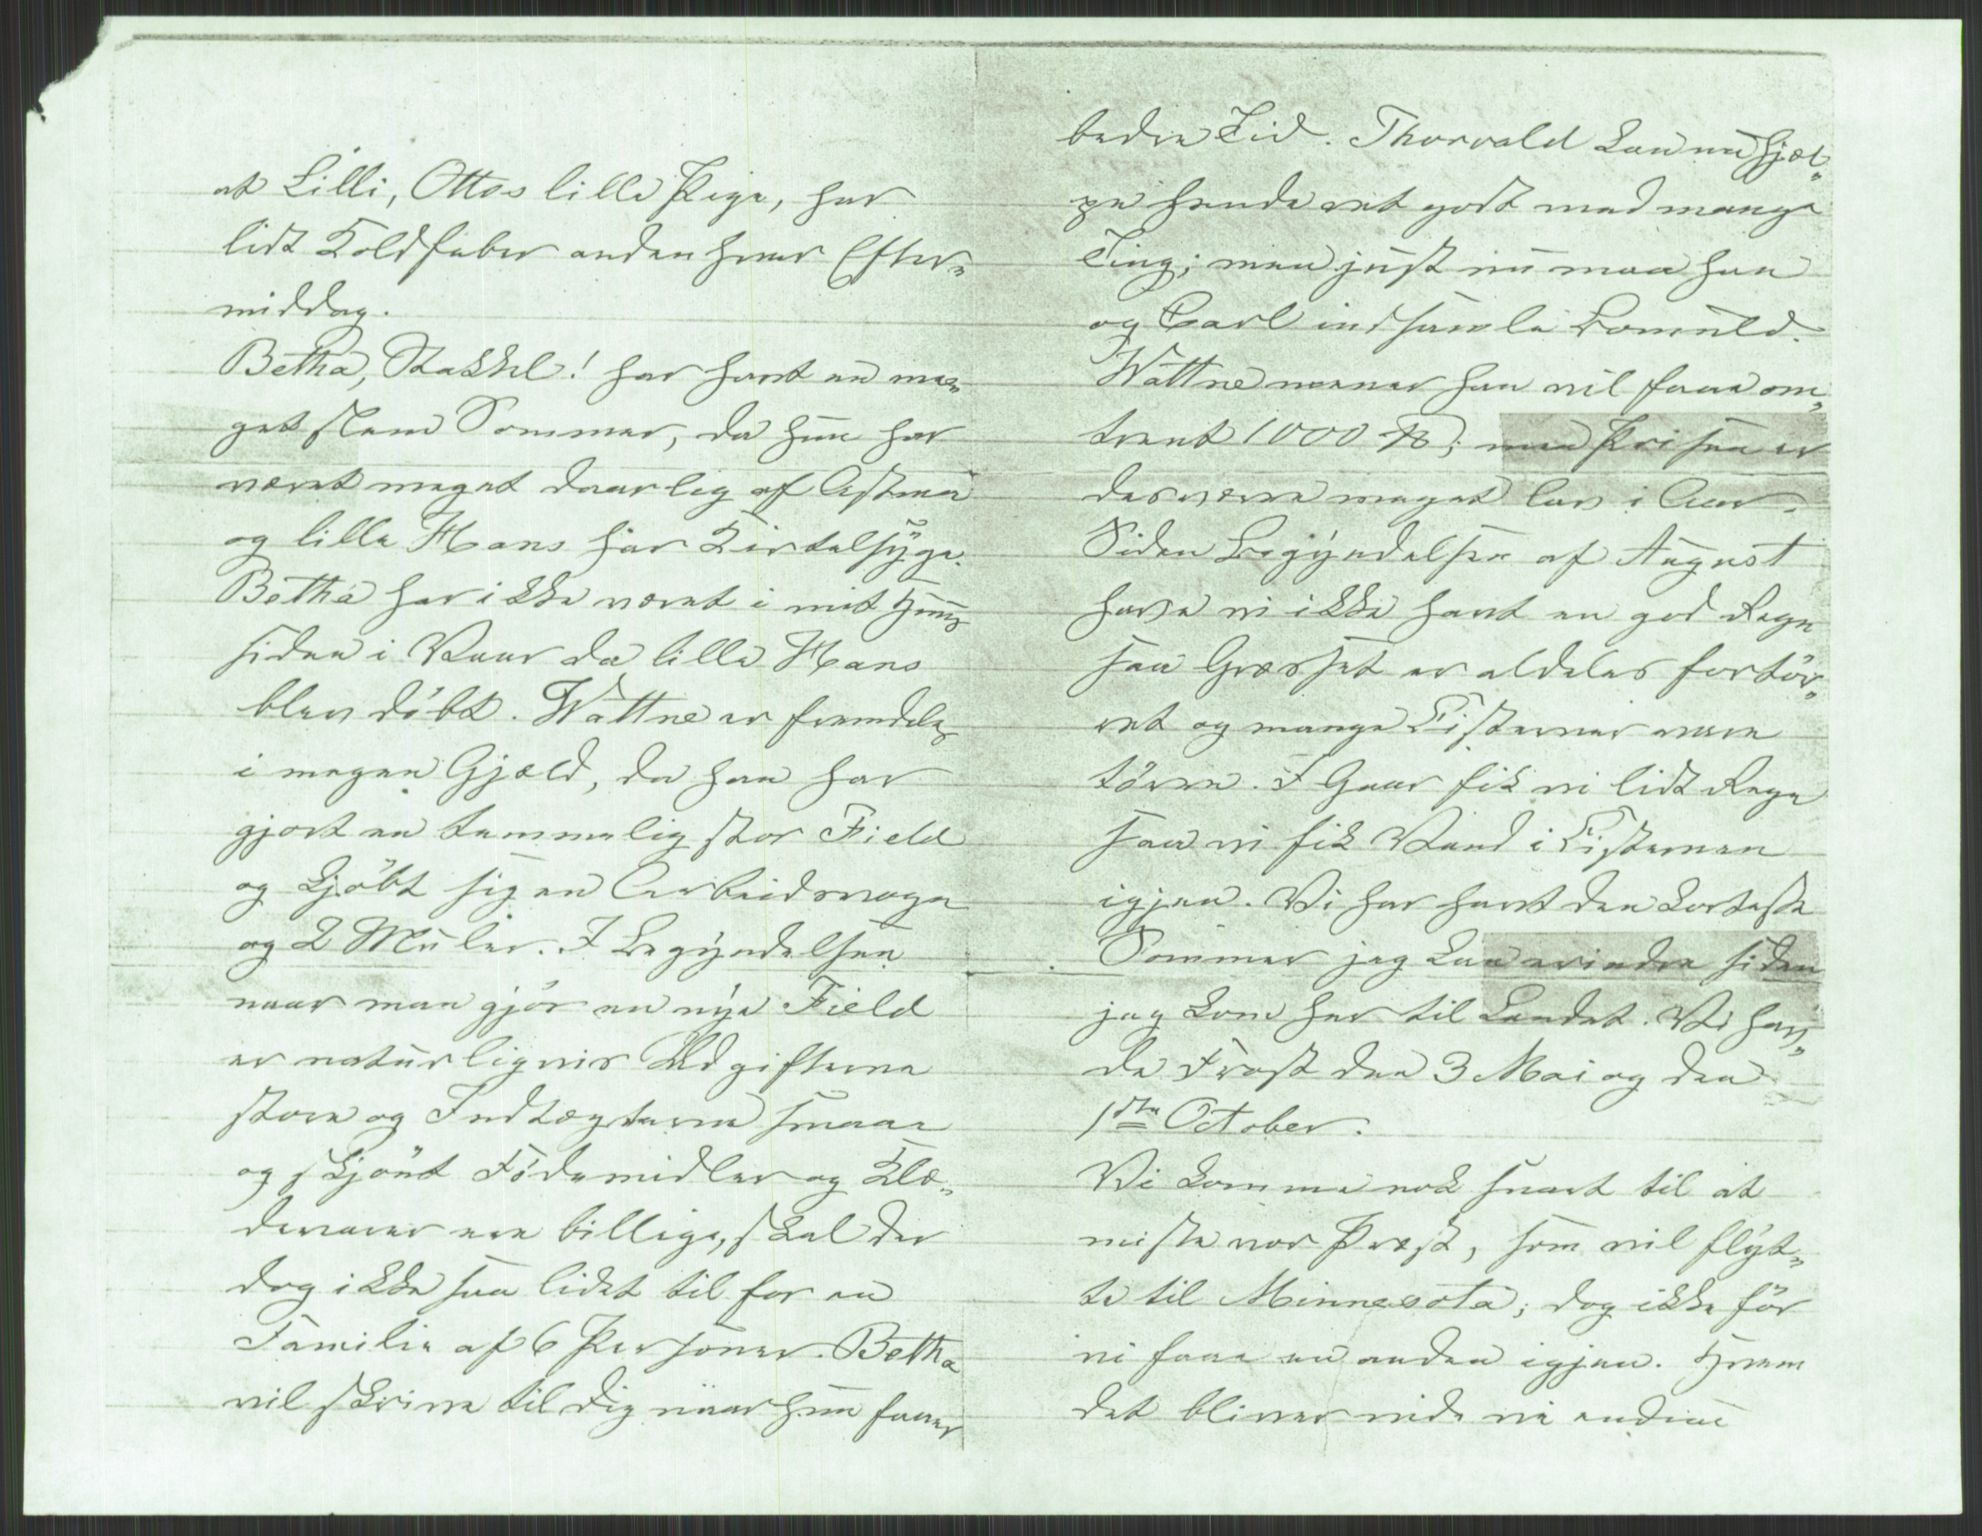 at Lilli, Ottos lille Pige, har
lidt Koldfeber anden hver Efter„
middag.
Betha, Stakkel! har havt en me„
get slem Sommer, da hun har
været meget daarlig af Astma
og lille Hans har Kirtelsyge.
Betha har ikke været i mit Huus
siden i Vaar da lille Hans
blev döbt. Wattne er fremdeles
i megen Gjæld, da han har
gjort en temmelig stor Field
og kjöbt sig en Arbeidsvogn
og 2 Muler. I Begyndelsen
naar man gjör en nye Field
er naturligvis Udgifterne
store og Indtægterne smaae
og skjönt Födemidler og Klæ„
devarer ere billige, skal der
dog ikke saa lidet til for en
Familie af 6 Personer. Betha
vil skrive til dig naar hun faaer
bedre Tid. Thorvald kan nu hjæl„
pe hende ret godt med mange
Ting; men just nu maa han
og Carl indsamle Bomuld.
Wattne mener han vil faae om„
trent 1000 ℔; men Prisen er
desværre meget lav i Aar.
Siden Begyndelsen af August
have vi ikke havt en god Regn
saa Græsset er aldeles fortör„
ret og mange Cisterner vare
törre. I Gaar fik vi lidt Regn
saa vi fik Vand i Cisternen
igjen. Vi har havt den korteste
Sommer jeg kan erindre siden
jeg kom her til Landet. Vi hav„
de Frost den 3 Mai og den
1ste October.
Vi komme nok snart til at
miste vor Præst, som vil flyt„
te til Minnesota; dog ikke för
vi faae en anden igjen. Hvem
det bliver vide vi endnu